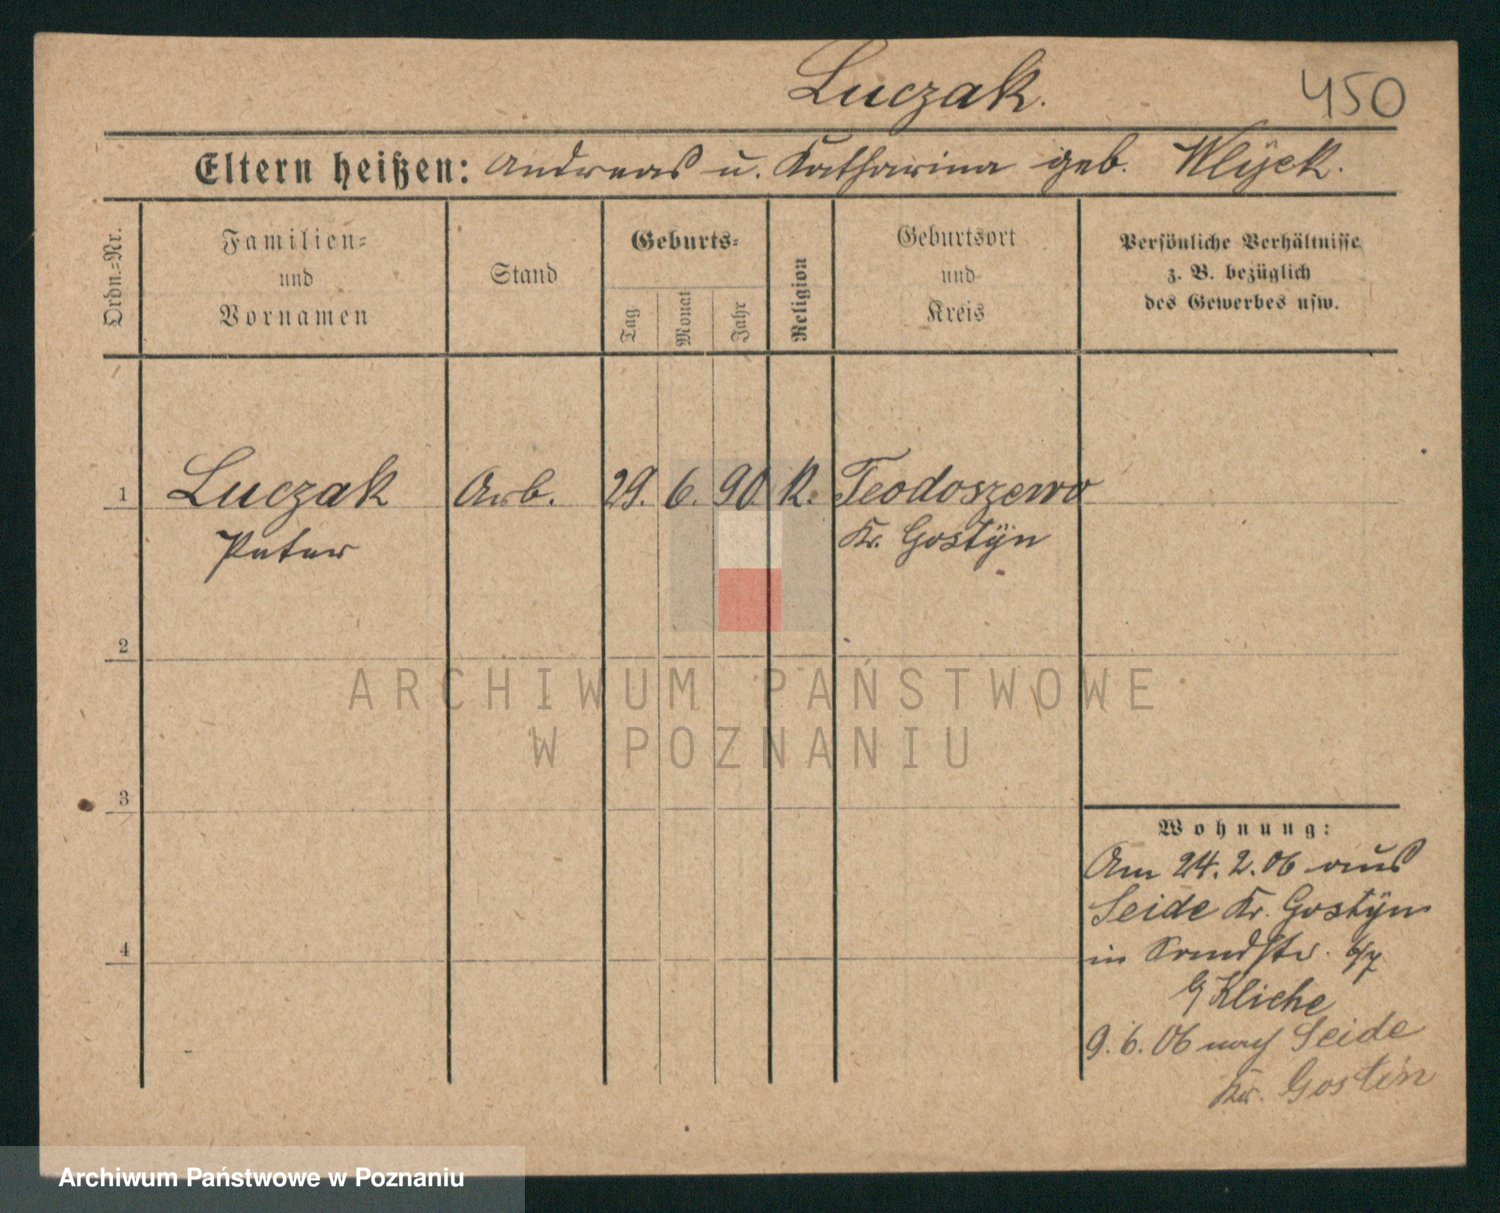 Luczak. 450
Eltern heißen: Andreas u. Katharina geb. Wlyek.
Ordn.=Nr.
Familien=
und
Vornamen
Stand
Geburts=
Tag
Monat
Jahr
Religion
Geburtsort
und
Kreis
Persönliche Verhältnisse
z. B. bezüglich
des Gewerbes usw.
1 Luczak Arb. 29. 6. 90 K. Teodoszewo
Peter Kr. Gostÿn
2
3
4
Wohnung:
Am 24. 2. 06 aus
Seide Kr. Gostÿn
in
Kliche
9. 6. 06 nach Seide
Kr. Gostin
ARCHIWUM PAŃSTWOWE
W POZNANIU
Archiwum Państwowe w Poznaniu